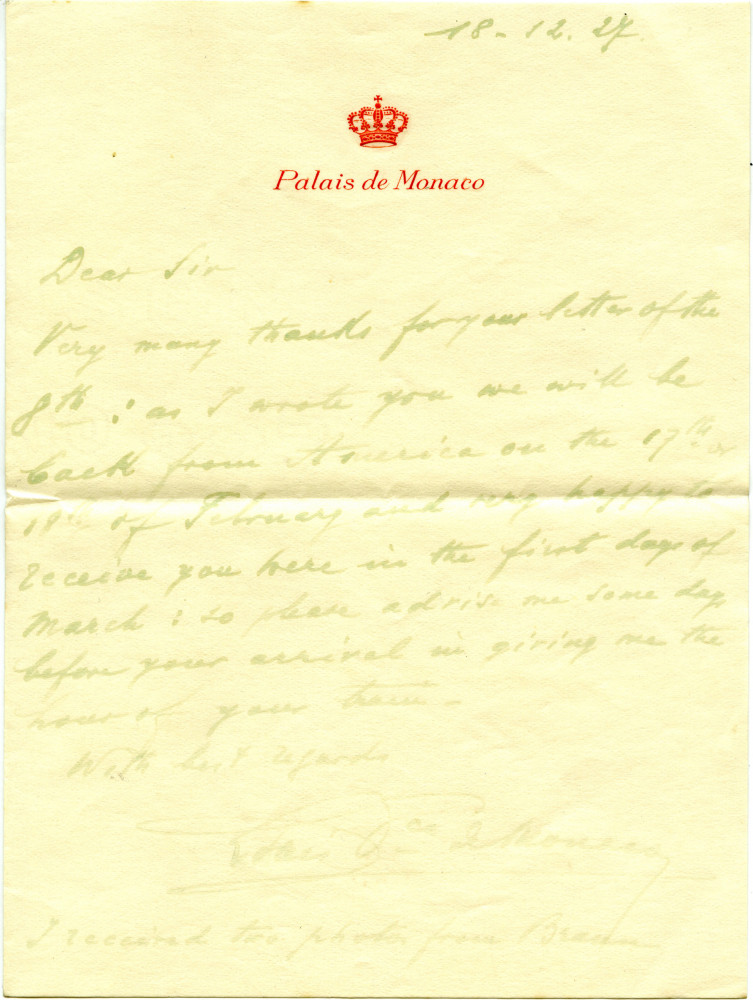 18-12.27.
Palais de Monaco
Dear Sir
Very many thanks for your letter of the
8th : as I wrote you we will be
back from America on the 17th or
18th of February and very happy to
receive you here in the first days of
March : so please advise me some days
before your arrival in giving me the
hour of your train -
With best regards
Louis Pce de Monaco
I received two photos from Braun